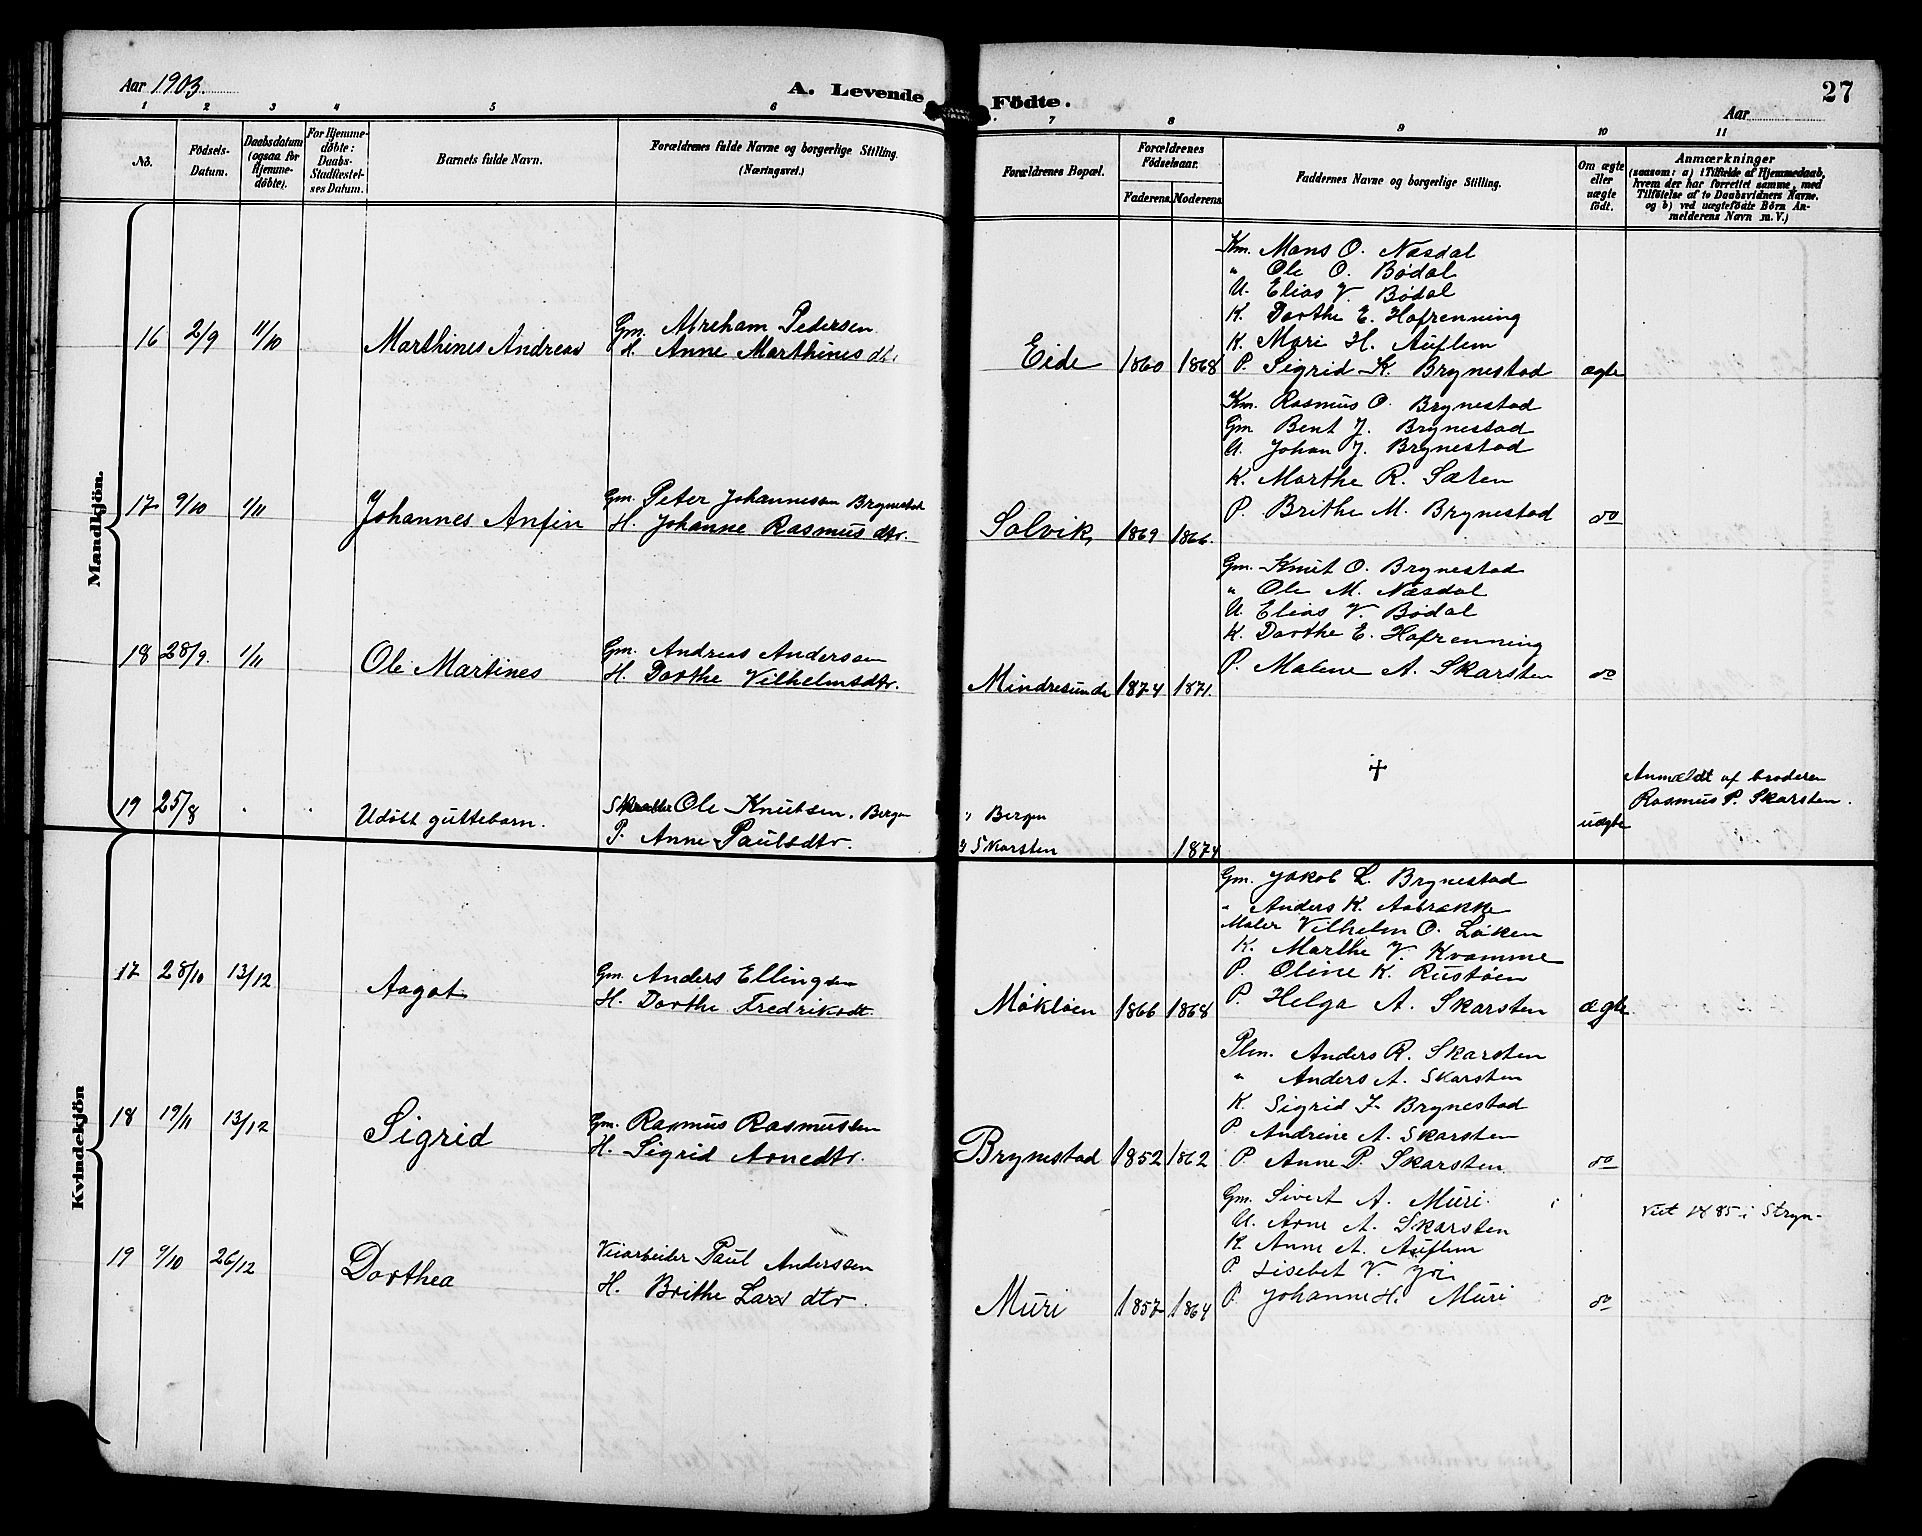 Aar 1903.
A. Levende Födte.
27
Aar
1 2 3 4 5 6 7 8 9 10 11
No. Födsels-Datum. Daabsdatum (ogsaa for Hjemmedöbte). For Hjemmedöbte: Daabs-Stadfæstelses Datum. Barnets fulde Navn. Forældrenes fulde Navne og borgerlige Stilling. (Næringsvei.)
Forældrenes Bopæl. Forældrenes Födselsaar. Faderens. Moderens. Faddernes Navne og borgerlige Stilling. Om ægte eller uægte födt. Anmærkninger
(saasom: a) i Tilfælde af Hjemmedaab,
hvem der har forrettet samme, med
Tilföielse af to Daabsvidners Navne.
og b) ved uægtefödte Börn Anmelderens Navn m. V.)
Mandkjön.
16 2/9 11/10 Marthines Andreas
Gm. Abraham Pedersen
H. Anne Marthinesdtr
Eide 1860 1868
Km. Mons O. Næsdal
" Ole O. Bödal
U. Elias V. Bödal
K. Dorthe E. Hafrenning
K. Mari H. Auflem
P. Sigrid K. Brynestad
ægte
17 9/10 1/11 Johannes Anfin
Gm. Peter Johannesen Brynestad
H. Johanne Rasmusdtr.
Solvik 1869 1866.
Km. Rasmus O. Brynestad
Gm Bent J. Brynestad
U. Johan J. Brynestad
K. Marthe R. Sæten
P. Brithe M. Brynestad
do
18 28/9. 1/11 Ole Martines
Gm. Andreas Anderssen
H. Dorthe Vilhelmsdtr.
Mindresunde 1874 1871.
Gm. Knut O. Brynestad
" Ole M. Næsdal
U. Elias V. Bödal
K. Dorthe E. Hafrenning
P. Malene A. Skarsten
do
19 25/8 " " Udöbt guttebarn.
Ole Knutsen. Bergen
P. Anne Paulsdtr.
" Bergen
" Skarsten 1874
+
uægte
Anmældt af broderen
Rasmus P. Skarsten.
Kvindekjön
17 28/10 13/12 Aagot
Gm. Anders Ellingsen
H. Dorthe Fredriksdt.
Mökløen 1866 1868
Gm. Jakob L. Brynestad
" Anders K. Aabrække
Maler Vilhelm O. Løken
K. Marthe V. Kvamme
P. Oline K. Rustøen
P. Helga A. Skarsten
ægte
18 19/11 13/12 Sigrid
Gm. Rasmus Rasmussen
H. Sigrid Arnedtr.
Brynestad 1852 1862
Plm. Anders R. Skarsten
" Anders A. Skarsten
K. Sigrid J. Brynestad
P. Andrine A. Skarsten
P. Anne P. Skarsten
do
19 9/10 26/12 Dorthea
Veiarbeider Paul Anderssen
H. Brithe Larsdtr.
Muri 1857 1864
Gm. Sivert A. Muri
U. Arne A. Skarsten
K. Anne A. Auflem
P. Lisebet V. Yri
P. Johanne H. Muri
do
Viet 1885 i Stryn